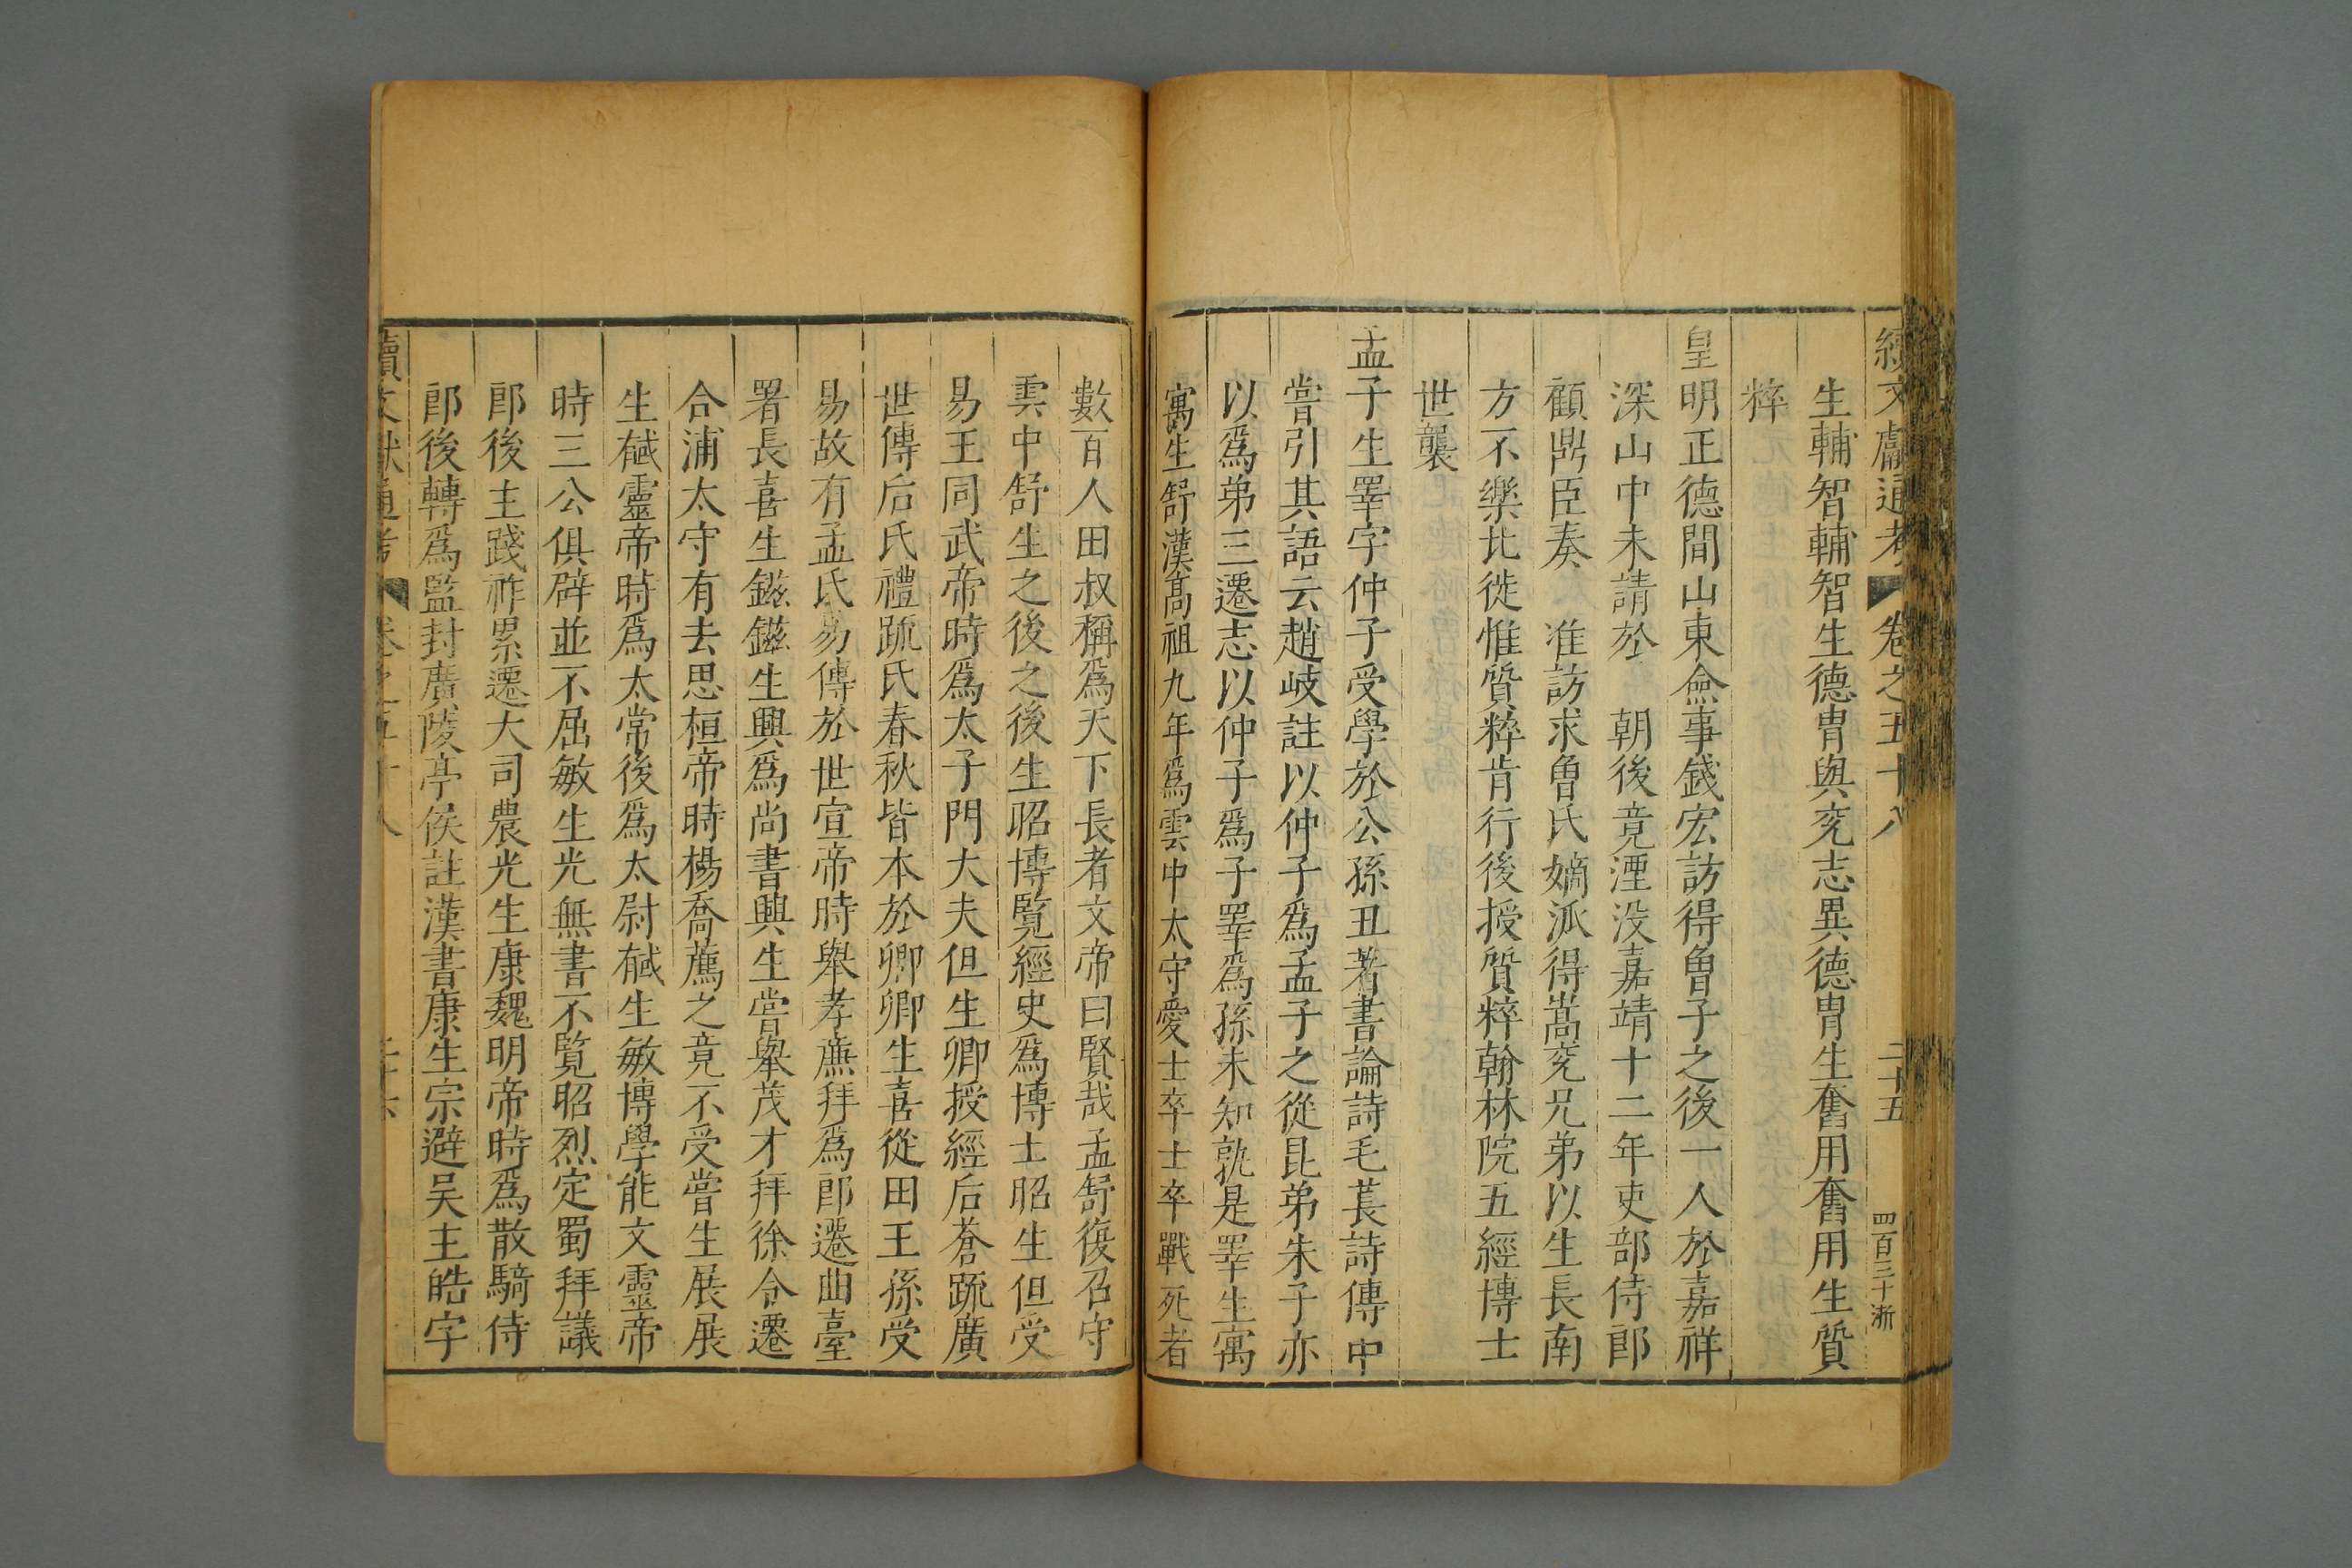 續文獻通考 卷之五十八 二十五 四百三十浙
生輔智輔智生德胄與兖志異德胄生奮用奮用生質
粹
皇明正德間山東僉事錢宏訪得曾子之後一人於嘉祥
深山中未請於 朝後竟湮没嘉靖十二年吏部侍郎
顧鼎臣奏 准訪求曾氏嫡派得嵩兖兄弟以生長南
方不樂北徙惟質粹肯行後授質粹翰林院五經博士
世襲
孟子生睪字仲子受學於公孫丑著書論詩毛萇詩傳中
嘗引其語云趙岐註以仲子爲孟子之從昆弟朱子亦
以爲弟三遷志以仲子爲子睪爲孫未知孰是睪生寓
寓生舒漢髙祖九年爲雲中太守愛士卒士卒戰死者
數百人田叔稱爲天下長者文帝曰賢哉孟舒復召守
雲中舒生之後之後生昭博覽經史爲博士昭生但受
易王同武帝時爲太子門大夫但生卿授經后蒼疏廣
世傳后氏禮疏氏春秋皆本於卿卿生喜從田王孫受
易故有孟氏易傳於世宣帝時舉孝廉拜爲郎遷曲臺
署長喜生鎡鎡生興爲尚書興生嘗舉茂才拜徐令遷
合浦太守有去思桓帝時楊喬薦之竟不受嘗生展展
生郁靈帝時爲太常後爲太尉郁生敏博學能文靈帝
時三公俱辟並不屈敏生光無書不覽昭烈定蜀拜議
郎後主踐祚累遷大司農光生康魏明帝時爲散騎侍
郎後轉爲監封廣陵亭侯註漢書康生宗避吴主皓字
續文獻通考 卷之五十八